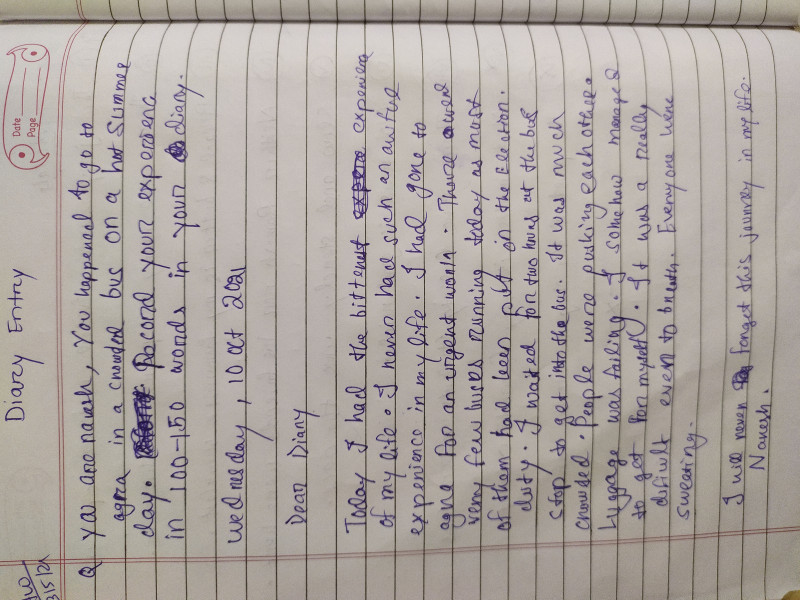 Date
Page
Diary Entry
Q You are naresh, You happened to go to
agra in a crowded bus on a hot Summer
day. Record your experience
in 100-150 words in your diary.
Wednesday, 10 Oct 2021
Dear Diary
Today I had the bitterest experience
of my life. I never had such an awful
experience in my life. I had gone to
agra for an urgent work. There were
very few buses running today as most
of them had been put on the election
duty. I waited for two hours at the bus
stop to get into the bus. It was much
crowded. People were pushing each other.
Luggage was falling. I somehow managed
to get for myself. It was a really
difficult even to breath. Everyone were
swearing.
I will never forget this journey in my life.
Naresh.